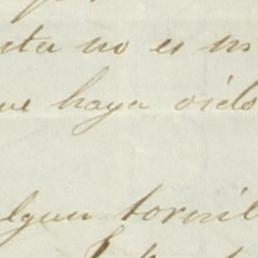 sta no es
ue haya oido
lgun tornil